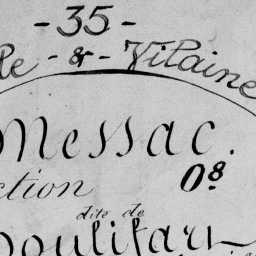 - 35 -
le - & - Vilaine
Messac.
ction 08
dite de